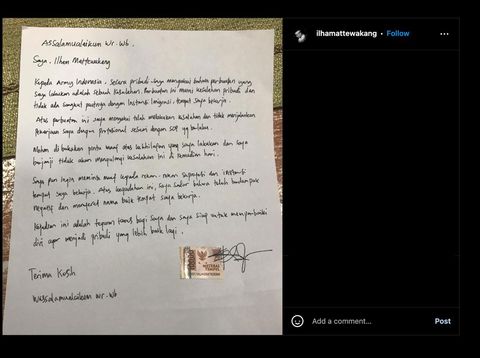 Assalamualaikum Wr. Wb.
Saya. Ilham Mattewakang
Kepada Army Indonesia, Secara pribadi Saya mengakui bahwa perbuatan yang
Saya lakukan adalah sebuah kesalahan. Perbuatan ini murni kesalahan pribadi dan
tidak ada sangkut pautnya dengan Instansi Imigrasi, tempat saya bekerja.
Atas perbuatan ini saya mengakui telah melakukan kesalahan dan tidak menjalankan
Pekerjaan saya dengan profesional sesuai dengan SOP yg berlaku.
Mohon dibukakan pintu maaf atas kekhilafan yang saya lakukan dan saya
berjanji tidak akan mengulangi kesalahan ini di kemudian hari.
Saya pun ingin meminta maaf kepada rekan-rekan sejawat dan instansi
tempat saya bekerja. Atas kegaduhan ini, saya sadar bahwa telah berdampak
negatif dan mencoreng nama baik tempat saya bekerja.
Kejadian ini adalah teguran keras bagi saya dan saya siap untuk memperbaiki
diri agar menjadi pribadi yang lebih baik lagi.
10000
METERAI
TEMPEL
Terima Kasih
Wassalamualaikum Wr. Wb
ilhamattewakang • Follow
Add a comment...
Post